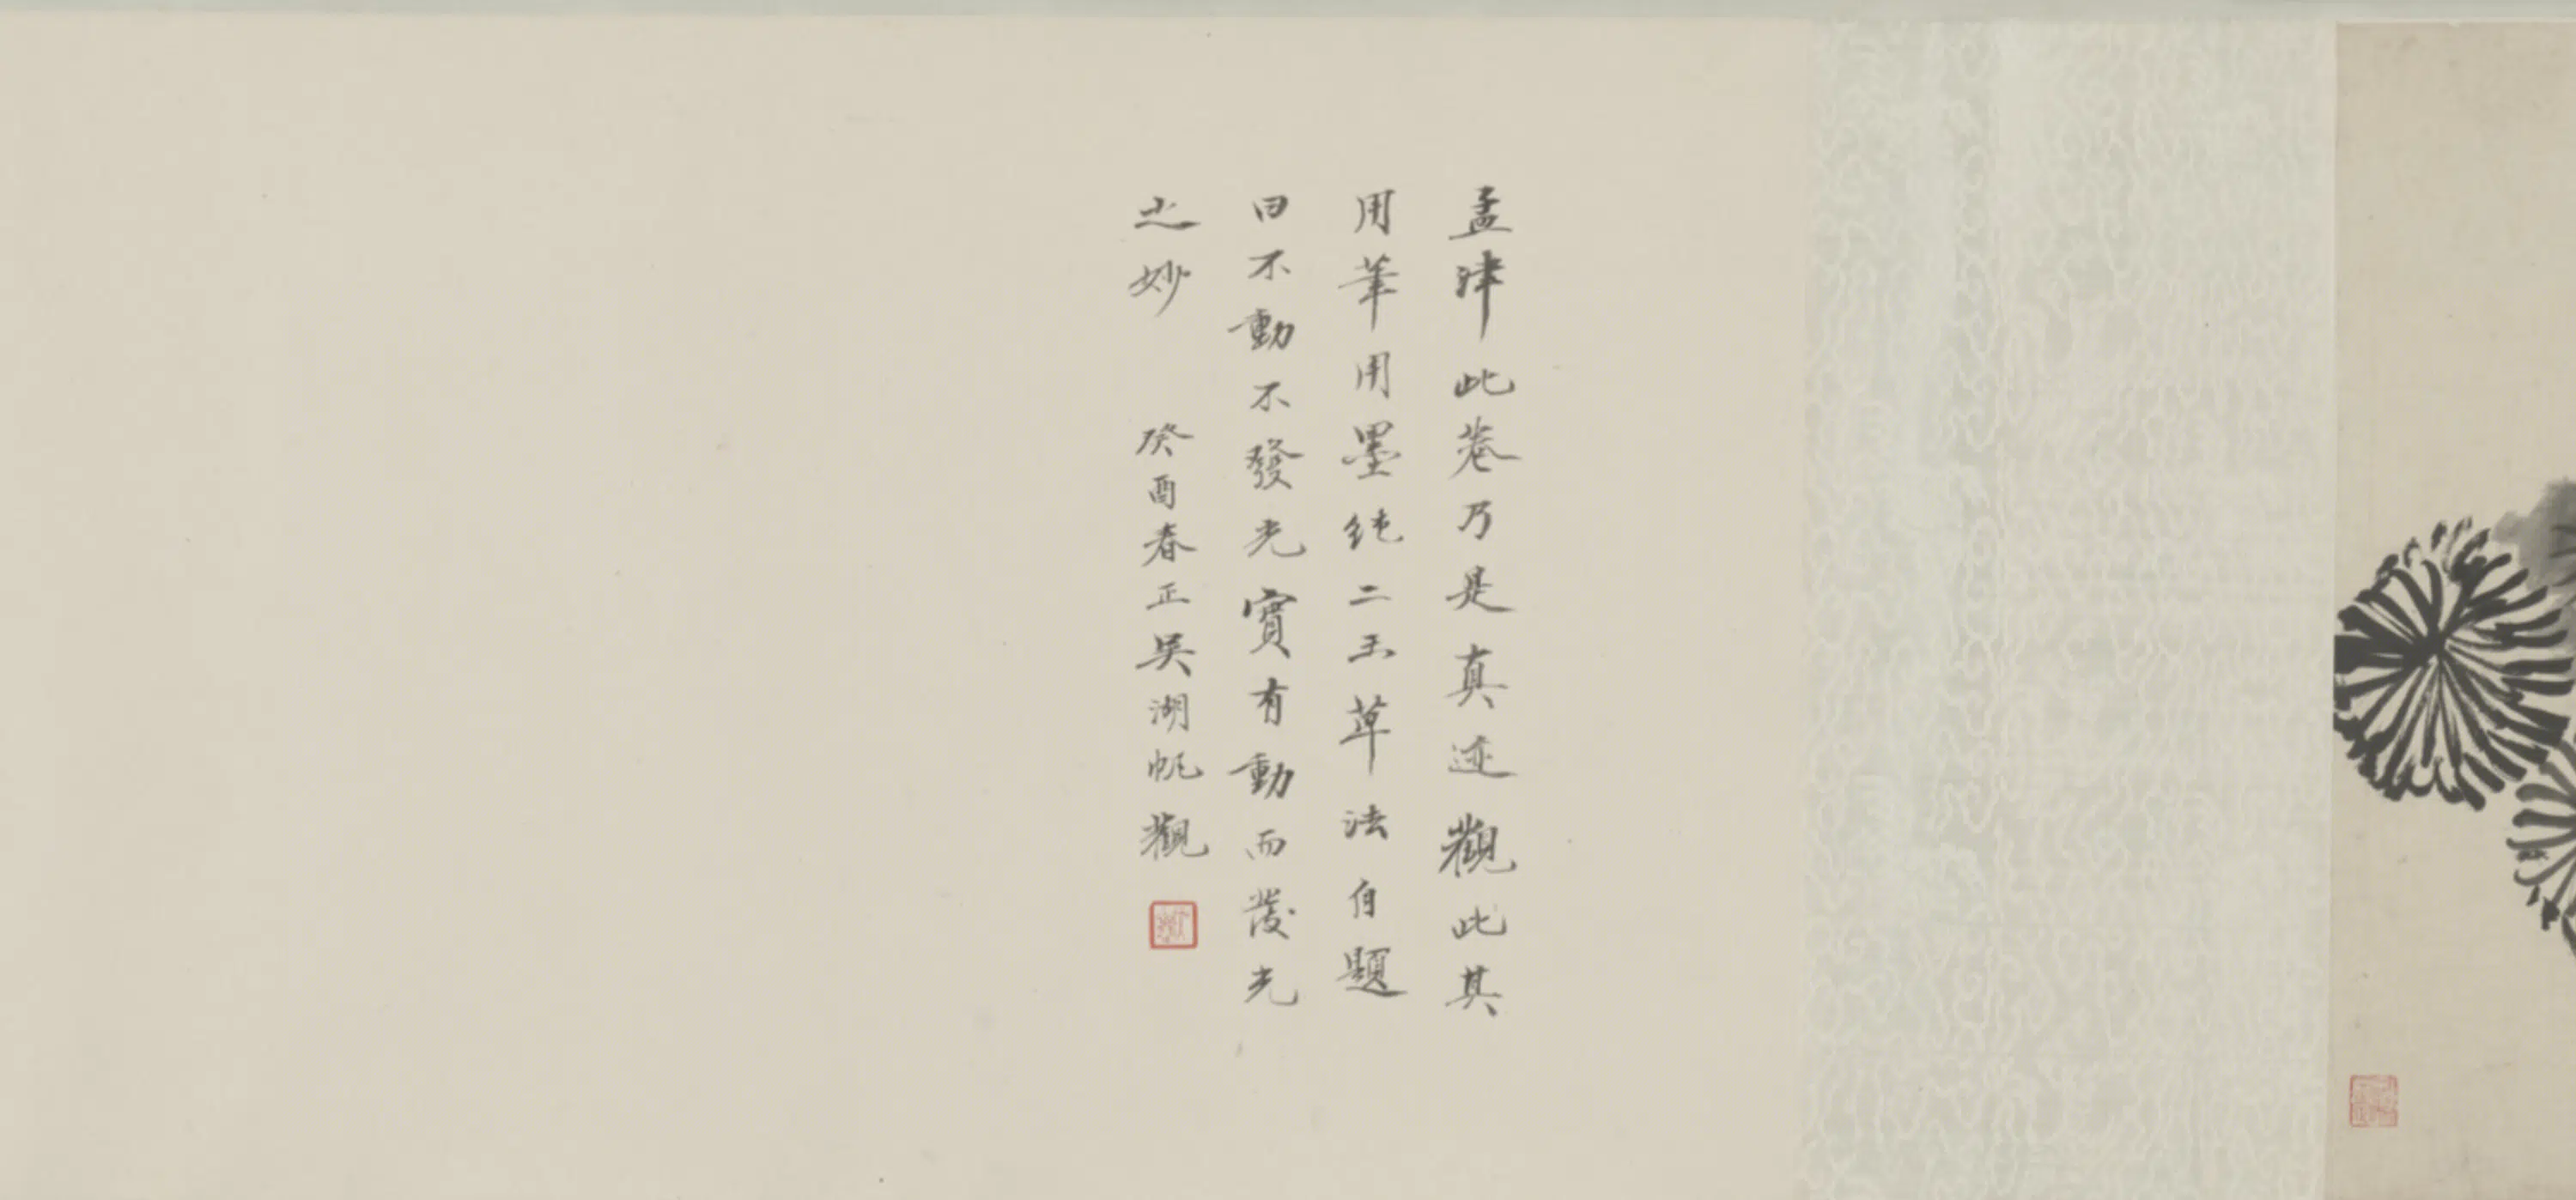 孟津此卷乃是真迹觀此其
用筆用墨純二王草法自題
曰不動不發光實有動而發光
之妙 癸酉春正吳湖帆觀